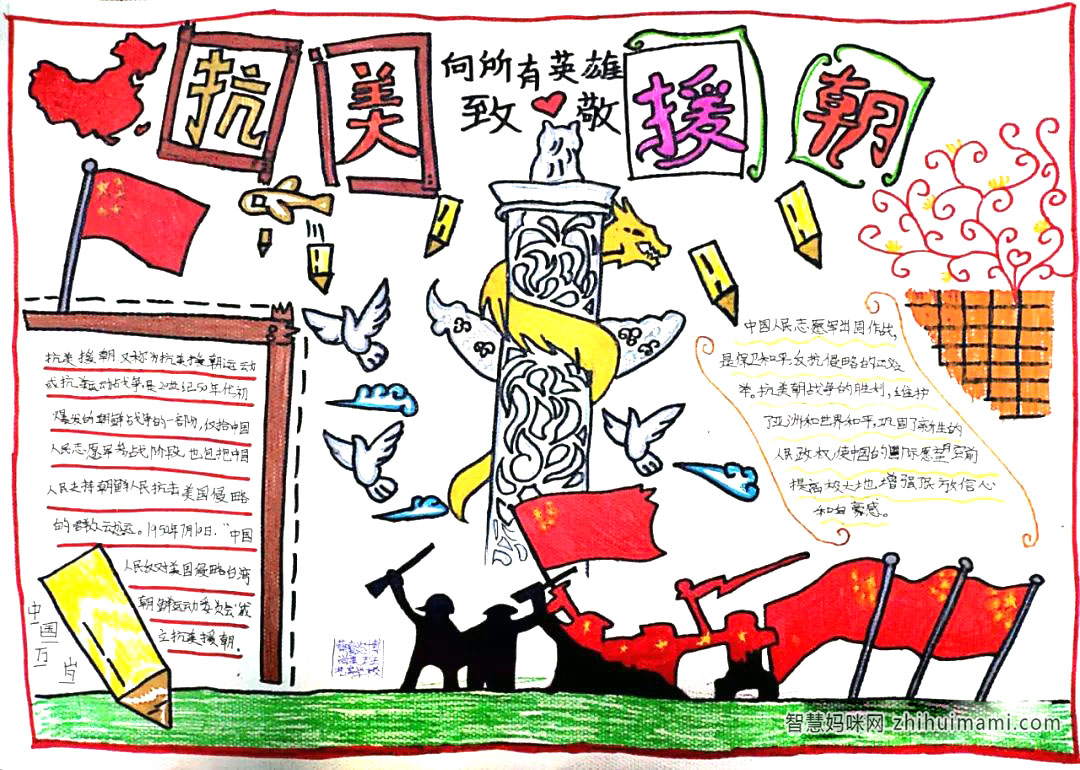 抗美援朝
向所有英雄
致敬
抗美援朝又称为抗美援朝运动
或抗美运动战争,是20世纪50年代初
爆发的朝鲜战争的一部分,仅指中国
人民志愿军参战阶段,也包把中国
人民支持朝鲜人民抗击美国侵略
的群众运动。1950年7月10日,“中国
人民反对美国侵略台湾
朝鲜运动委员会”成
立抗美援朝。
中国万岁
中国人民志愿军
是保卫和平反抗侵略的正义
举。抗美朝战争的胜利,维护
了亚洲和世界和平,巩固了新生的
人民政权,使中国的国际
提高
和自豪感。
智慧妈咪网 zhihuimami.com